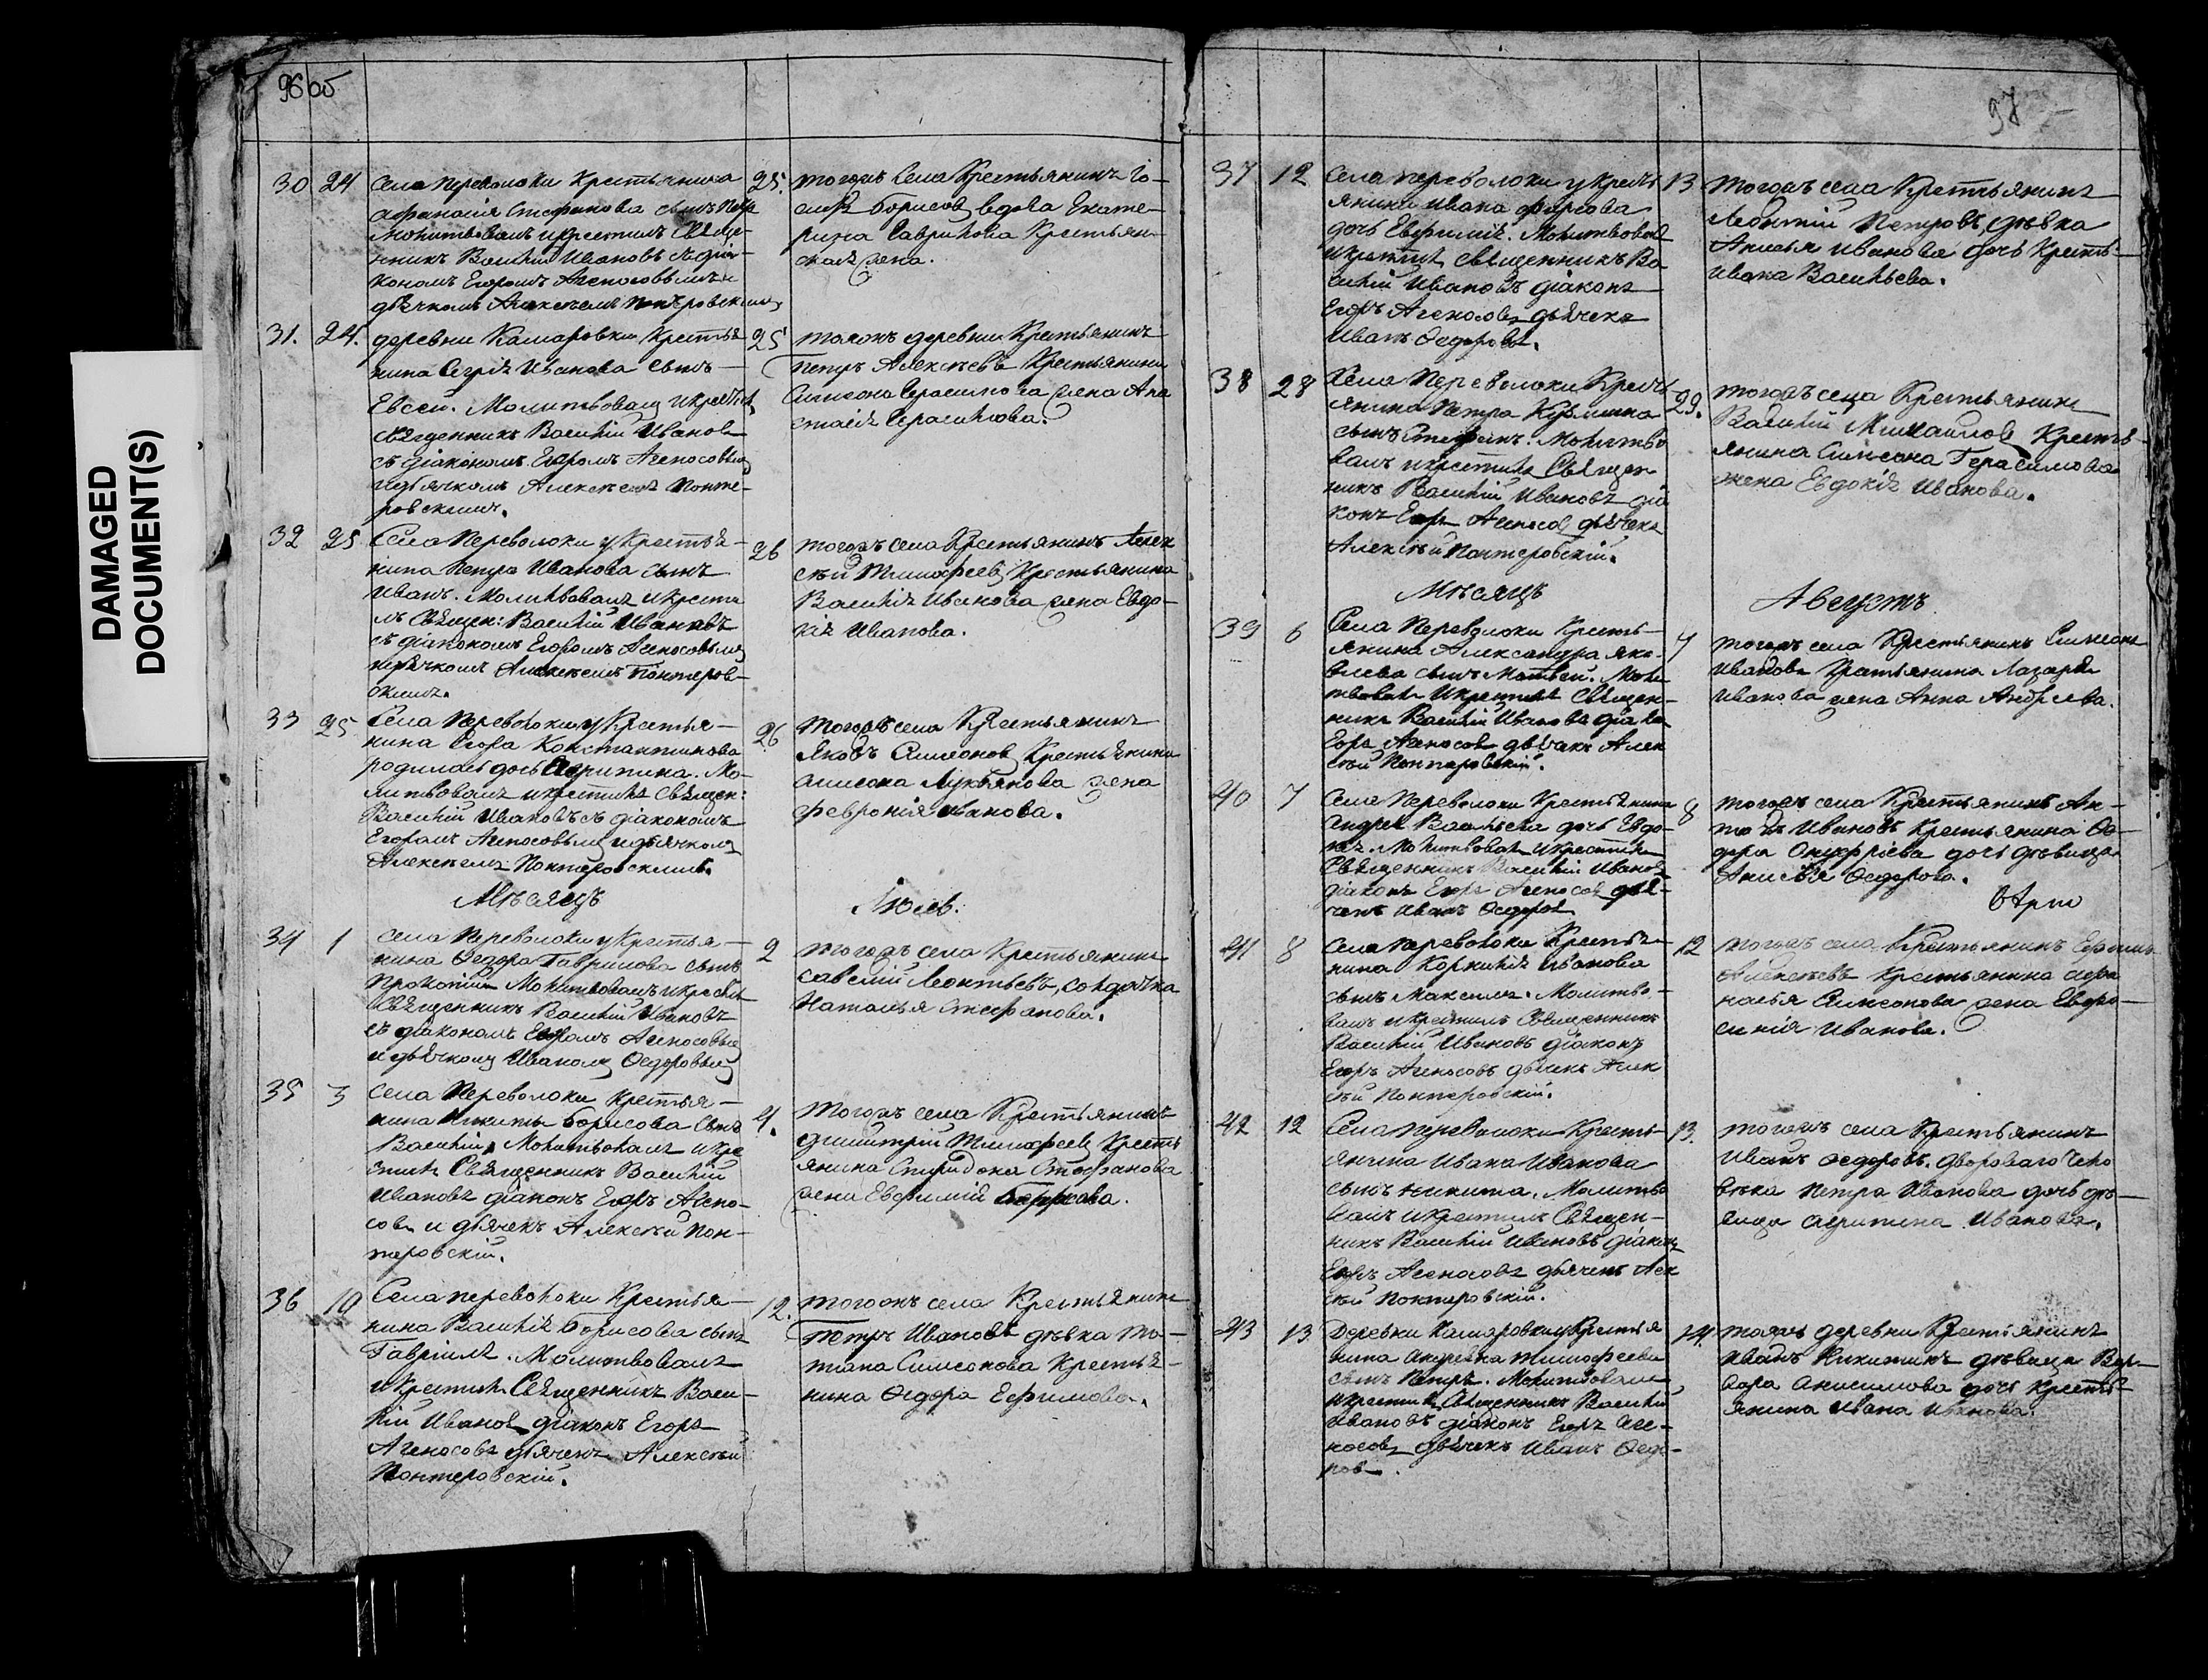 DAMAGED
DOCUMENT(S)
96 об
30 24 села Переволоки Крестьянина
Афанасія Стефанова сынъ Петръ
Молитвовалъ и крестилъ Священ-
никъ Василій Ивановъ съ діа-
кономъ Егоромъ Агеносовымъ и
дьячкомъ Алексеемъ Понтеровскимъ
25. тогожъ села Крестьянинъ
Борисовъ вдова Екате-
рина Гаврилова Крестьян-
ская жена.
31. 24. деревни Камаровки Крестья
нина Сергія Иванова сынъ
Евсей. Молитвовалъ и крестилъ
священникъ Василій Ивановъ
съ діакономъ Егоромъ Агеносовымъ
и дьячкомъ Алексеемъ Понте-
ровскимъ.
25 тояжъ деревни Крестьянинъ
Петръ Алексеевъ Крестьянина
Симеона Герасимова жена Ана
стасія Герасимова.
32 25 Села Переволоки у Крестья-
нина Петра Иванова сынъ
Иванъ. Молитвовалъ и крести
лъ Священ: Василій Ивановъ
съ діакономъ Егоромъ Агеносовымъ
и дьячкомъ Алексеемъ Понтеров-
скимъ.
26 тогожъ села Крестьянинъ Алек
сѣй Тимофеевъ Крестьянина
Василія Иванова жена Евдо-
кія Иванова.
33 25 Села Переволоки у Крестья-
нина Егора Константинова
родилась дочь Агрипина. Мо-
литвовалъ и крестилъ Священ:
Василій Ивановъ съ діакономъ
Егоромъ Агеносовымъ и дьячкомъ
Алексеемъ Понтеровскимъ.
26 тогожъ села Крестьянинъ
Яковъ Симеоновъ Крестьянина
Лукьянова жена
Февронія Иванова.
Мѣсяцъ Іюль.
34 1 села Переволоки у Крестья-
нина Ѳедора Гаврилова сынъ
Прокопій Молитвовалъ и крестилъ
Священникъ Василій Ивановъ
съ діакономъ Егоромъ Агеносовымъ
и дьячкомъ Иваномъ Ѳедоровымъ
2 тогожъ села Крестьянинъ
Савелій Леонтьевъ, солдатка
Наталья Стефанова.
35 3 села Переволоки Крестья-
нина Никиты Борисова сынъ
Василій. Молитвовалъ и кре
стилъ Священникъ Василій
Ивановъ діаконъ Егоръ Агено-
совъ и дьячекъ Алексѣй Пон-
теровскій.
4. тогожъ села Крестьянинъ
Димитрій Тимофеевъ Кресть
янина Спиридона Стефанова
жена Евфимія
36 10 Села Переволоки Крестья-
нина Василія Борисова сынъ
Гавріилъ. Молитвовалъ
и крестилъ Священникъ Васи-
лій Ивановъ діаконъ Егоръ
Агеносовъ дьячекъ Алексѣй
Понтеровскій.
12. тогожъ села Крестьянинъ
Петръ Ивановъ дѣвка Та-
тіана Симеонова Крестья-
нина Ѳедора Ефимова.
97
37 12 Села Переволоки у Кресть
янина Ивана Фирсова
дочь Евфимія. Молитвовалъ
и крестилъ Священникъ Ва-
силій Ивановъ діаконъ
Егоръ Агеносовъ дьячекъ
Иванъ Ѳедоровъ.
13 тогожъ села Крестьянинъ
Леонтій Петровъ, дѣвка
Анисья Иванова дочь Кресть-
Ивана Васильева.
38 28 Села Переволоки Кресть
янина Петра Кузмина
сынъ Стефанъ. Молитво
валъ и крестилъ Священ
никъ Василій Ивановъ діа
конъ Егоръ Агеносовъ дьячекъ
Алексѣй Понтеровскій.
29. тогожъ села Крестьянинъ
Василій Михайловъ Кресть-
янина Симеона Герасимова
жена Евдокія Иванова.
Мѣсяцъ Августъ
39 6 Села Переволоки Кресть-
янина Александра Яко-
влева сынъ Матвей. Моли
твовалъ и крестилъ Священ-
никъ Василій Ивановъ діаконъ
Егоръ Агеносовъ дьячекъ Алек
сѣй Понтеровскій.
7 тогожъ села Крестьянинъ Симеонъ
Ивановъ Крестьянина Лазаря
Иванова жена Анна Андреева.
40 7 Села Переволоки Крестьянина
Андрея Васильева дочь Евдо-
кія. Молитвовалъ и крестилъ
Священникъ Василій Ивановъ
діаконъ Егоръ Агеносовъ дья-
чекъ Иванъ Ѳедоровъ
8 тогожъ села Крестьянинъ Ан-
тонъ Ивановъ Крестьянина Ѳе-
дора Онуфріева дочь дѣвица
Анисья Ѳедорова.
41 8 Села Переволоки Крестья-
нина Корнилія Иванова
сынъ Максимъ. Молитво-
валъ и крестилъ Священникъ
Василій Ивановъ діаконъ
Егоръ Агеносовъ дьячекъ Алек
сѣй Понтеровскій.
12 тогожъ села Крестьянинъ Ефимъ
Алексеевъ Крестьянина Афа
насья Симеонова жена Евфро-
синія Иванова.
42 12 Села Переволоки Кресть-
янина Ивана Иванова
сынъ Никита. Молитво
валъ и крестилъ Священ-
никъ Василій Ивановъ діаконъ
Егоръ Агеносовъ дьячекъ Алек
сѣй Понтеровскій.
13. тогожъ села Крестьянинъ
Иванъ Ѳедоровъ. дворового чело
вѣка Петра Иванова дочь дѣ-
вица Агрипина Иванова.
43 13 Деревни Камаровки у Крестья
нина Андреяна Тимофеева
сынъ Петръ. Молитвовалъ
и крестилъ Священникъ Василій
Ивановъ діаконъ Егоръ Аге-
носовъ дьячекъ Иванъ Ѳедо-
ровъ.
14. тояжъ деревни Крестьянинъ
Иванъ Никитинъ дѣвица Вар-
вара Анисимова дочь Кресть-
янина Ивана Иванова.